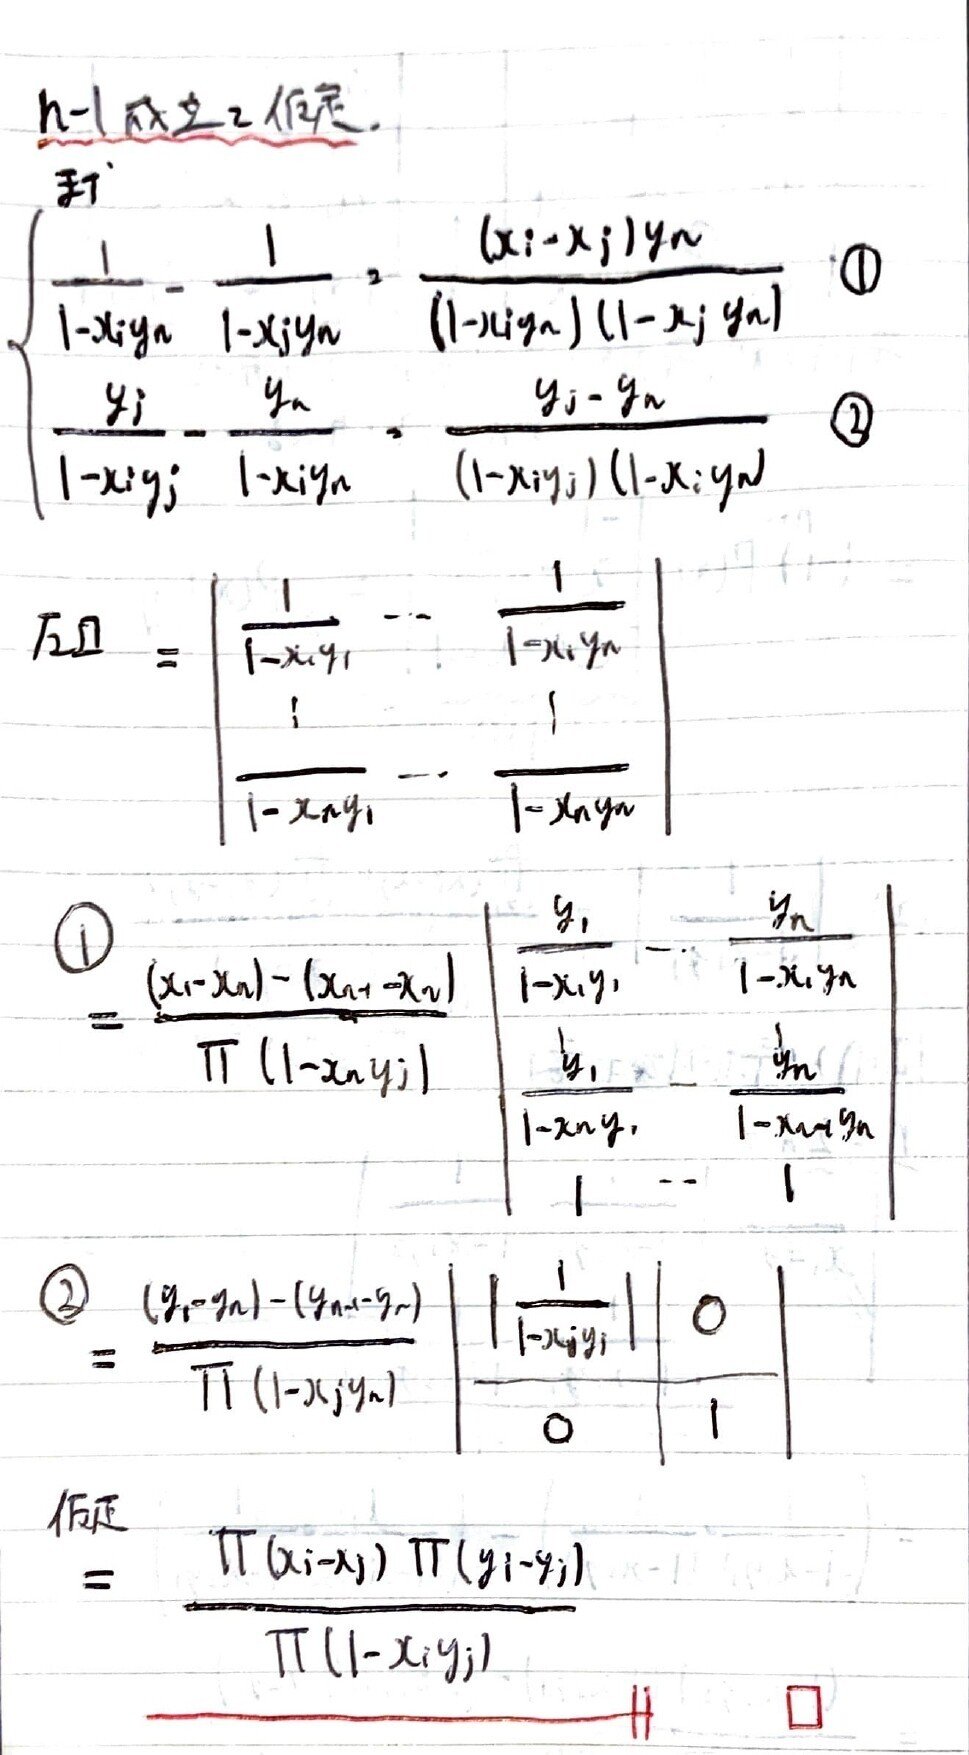 n-1 成立と仮定.
まず
1/(1-xᵢyₙ) - 1/(1-xⱼyₙ) = (xᵢ-xⱼ)yₙ/((1-xᵢyₙ)(1-xⱼyₙ)) ①
yⱼ/(1-xᵢyⱼ) - yₙ/(1-xᵢyₙ) = (yⱼ-yₙ)/((1-xᵢyⱼ)(1-xᵢyₙ)) ②
= | 1/(1-x₁y₁) ... 1/(1-x₁yₙ) |
| 1/(1-xₙy₁) ... 1/(1-xₙyₙ) |
① = (x₁-xₙ)-(xₙ₋₁-xₙ)/Π(1-xₙyⱼ) | y₁/(1-x₁y₁) ... yₙ/(1-x₁yₙ) |
| y₁/(1-xₙy₁) - yₙ/(1-xₙ₋₁yₙ) |
| 1 -- 1 |
② = (y₁-yₙ)-(yₙ₋₁-yₙ)/Π(1-xⱼyₙ) | |1/(1-xⱼyⱼ)| | 0 |
| 0 | 1 |
仮定
= Π(xᵢ-xⱼ) Π(yᵢ-yⱼ)/Π(1-xᵢyⱼ)
□